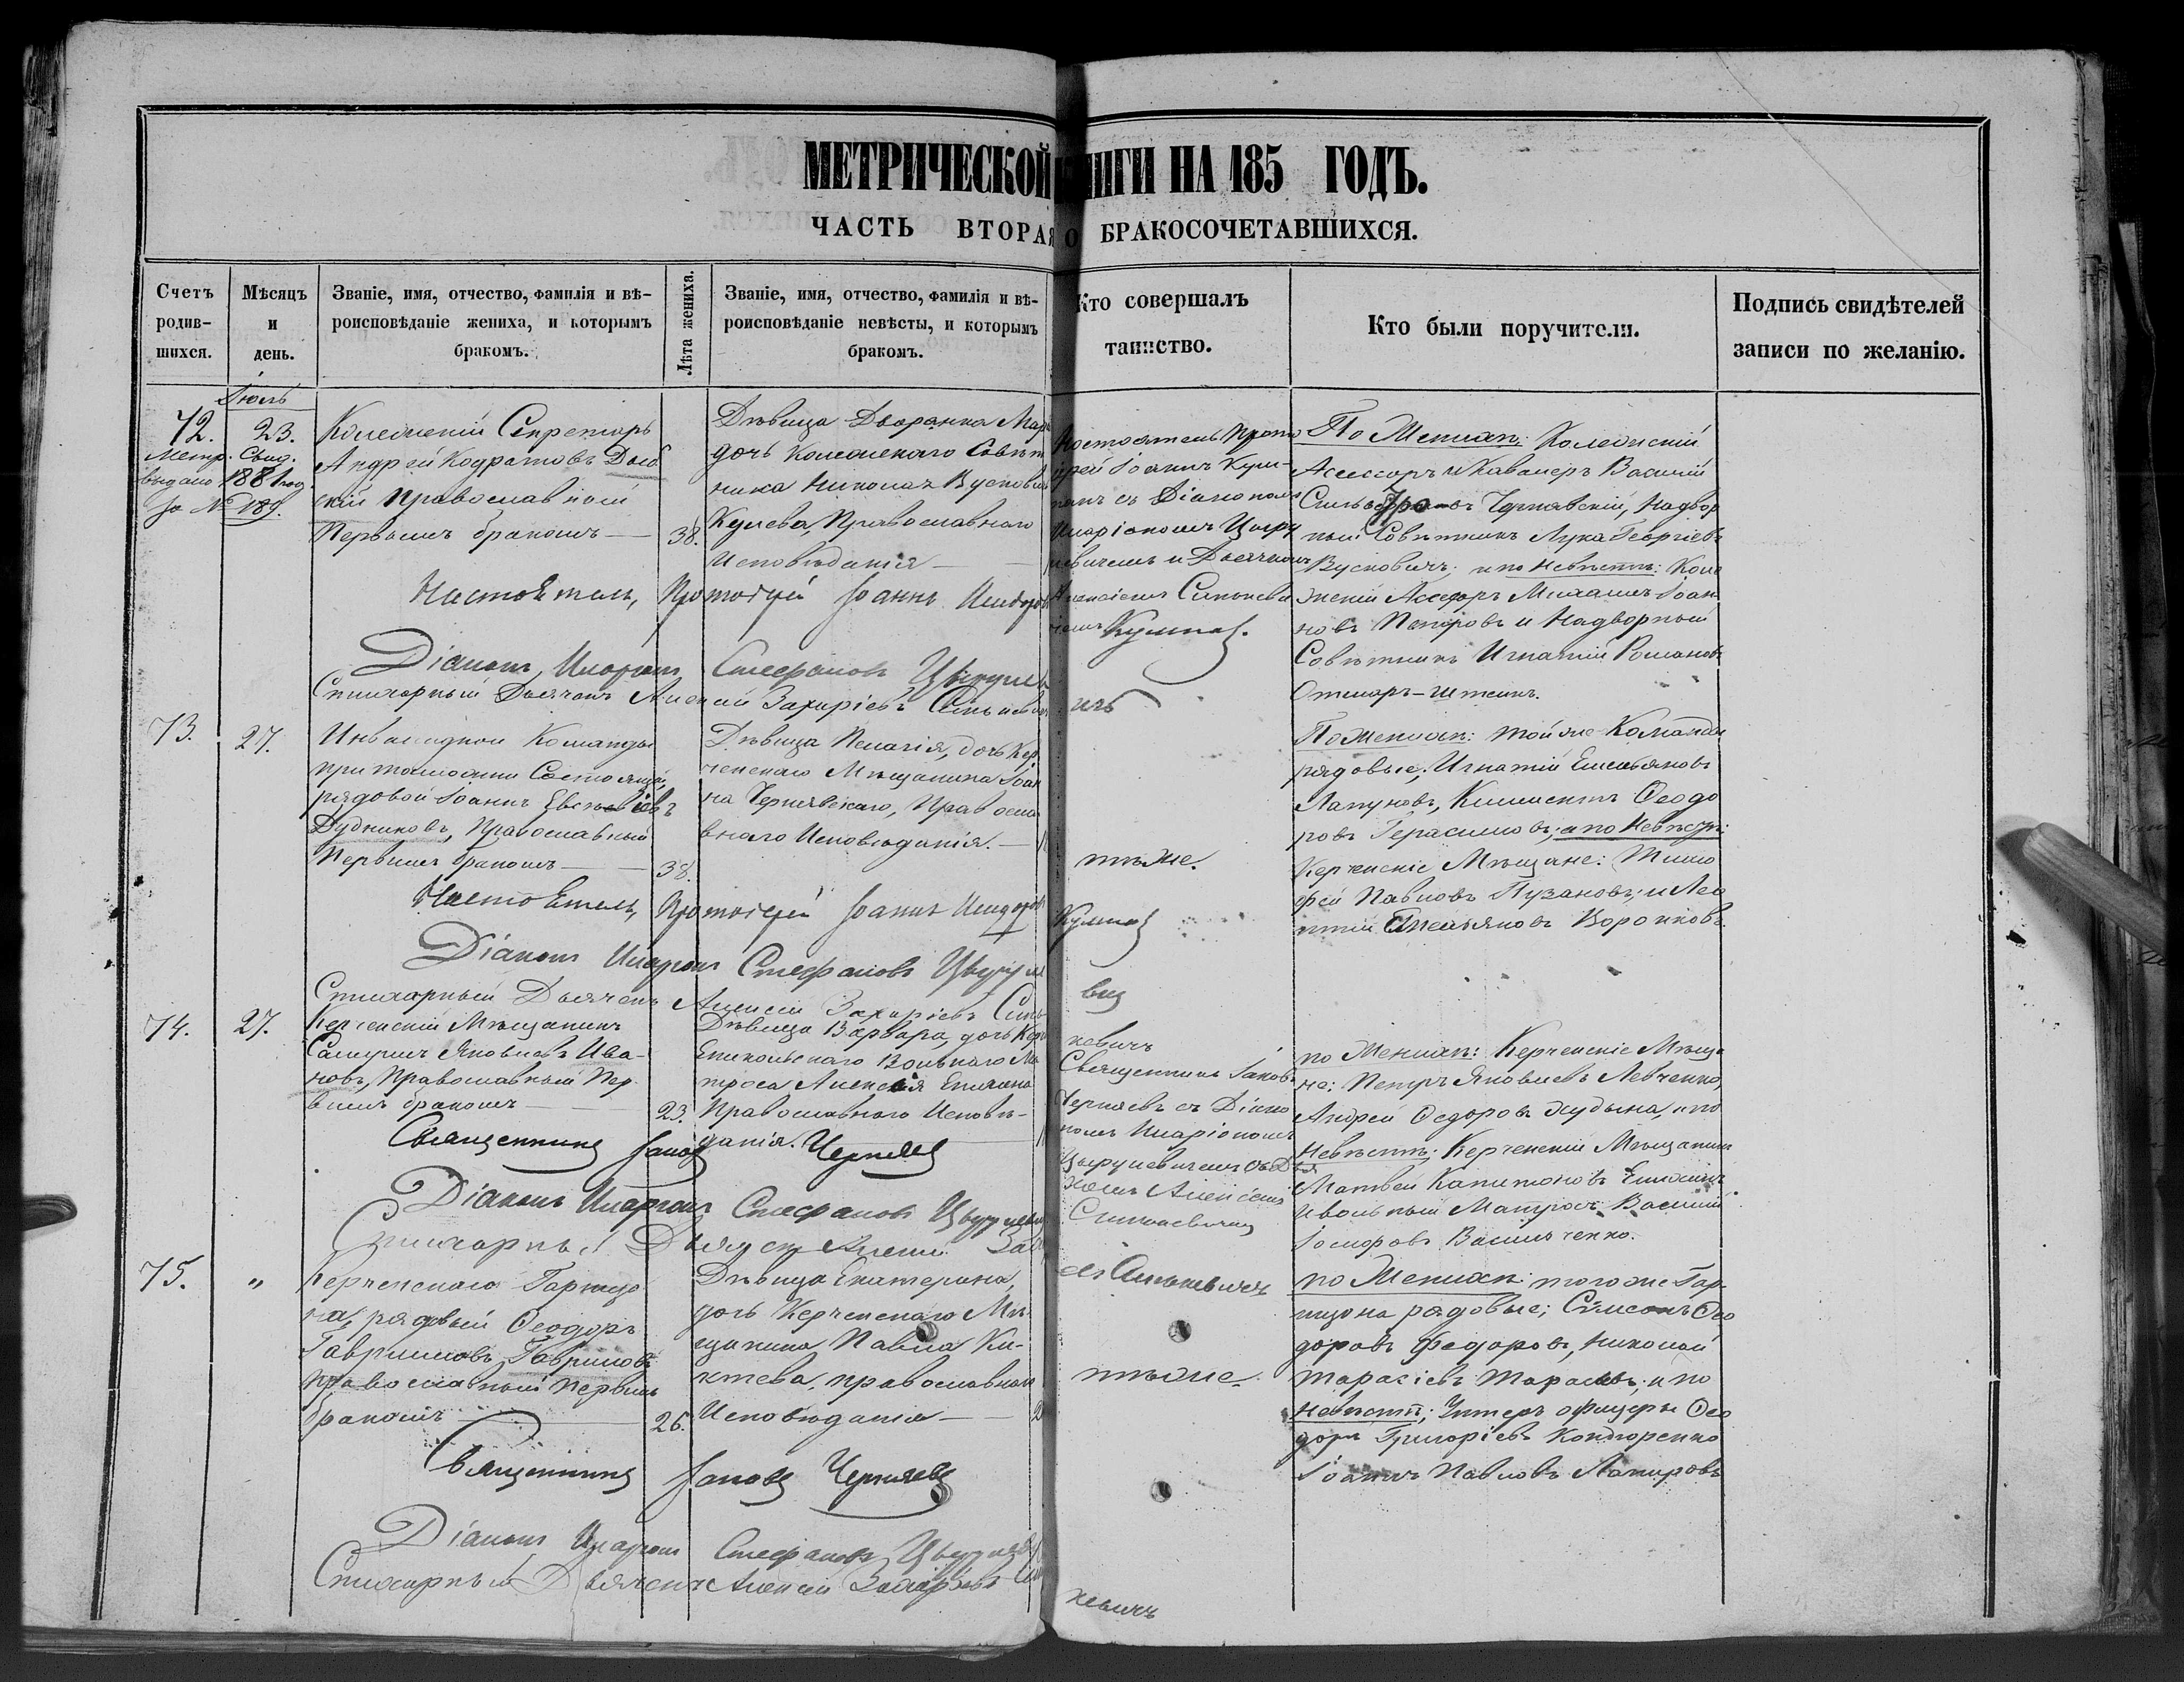 МЕТРИЧЕСКОЙ КНИГИ НА 185 ГОДЪ.
ЧАСТЬ ВТОРАЯ О БРАКОСОЧЕТАВШИХСЯ.
Счетъ
родив-
шихся.
Мѣсяцъ
и
день.
Званіе, имя, отчество, фамилія и вѣ-
роисповѣданіе жениха, и которымъ
бракомъ.
Лѣта жениха.
Званіе, имя, отчество, фамилія и вѣ-
роисповѣданіе невѣсты, и которымъ
бракомъ.
Кто совершалъ
таинство.
Кто были поручители.
Подпись свидѣтелей
записи по желанію.
72.
Метр. Свид.
выдано 1881 год.
за № 189.
23.
Колежскій Секретарь
Андрей Кодратовъ
православный
Первымъ бракомъ
38.
Дѣвица Дворянка
дочь Колежскаго Совѣт
ника Николая
Православнаго
Исповѣданія
Настоятель Прото
ерей Іоаннъ
съ Діакономъ
Иларіономъ
и Дьячкомъ
Алексіемъ
По Женихѣ: Колежскій
Асессоръ и Кавалеръ Василій
Чернявскій, Надвор
ный Совѣтникъ Лука Георгіевъ
Вусковичъ; и по Невѣстѣ: Коле
жскій Асессоръ Михаилъ Іоан
новъ Петровъ и Надворный
Совѣтникъ Игнатій Романовъ
Отмаръ-Штеинъ.
Настоятель, Протоіерей Іоаннъ Исидоровъ
Діаконъ, Иларіонъ Стефановъ
Стихарный Дьячокъ Алексій Захаріевъ
73.
27.
Инвалидной Команды
при таможни Состоящей,
рядовой Іоаннъ
Дудниковъ, Православный
Первымъ бракомъ
38.
Дѣвица Пелагія, дочь Кер
ченскаго Мѣщанина Іоан
на Чернявскаго, Правосла
внаго Исповѣданія.
тѣже.
По Женихѣ: той же Команды
рядовые; Игнатій Емельяновъ
Лапуновъ, Климентъ Ѳеодо
ровъ Герасимовъ; а по Невѣстѣ:
Керченскіе Мѣщане: Тимо
фей Павловъ Пузановъ; и Лео
нтій Емельяновъ Воронковъ.
Настоятель, Протоіерей Іоаннъ Исидоровъ
Діаконъ Иларіонъ Стефановъ
Стихарный Дьячекъ Алексій Захаріевъ
74.
27.
Керченскій Мѣщанинъ
Самуилъ Яковлевъ Ива-
новъ, Православный Пер
вымъ бракомъ
23.
Дѣвица Варвара, дочь Керчь
Еникольскаго Вольнаго Ма
троса Алексѣя
Православнаго Исповѣ-
данія.
Священникъ Іаковъ
Черняевъ съ Діако
номъ Иларіономъ
Алексіемъ
по Женихѣ: Керченскіе Мѣща
не: Петръ Яковлевъ Левченко,
Андрей Ѳедоровъ и по
Невѣстѣ: Керченскій Мѣщанинъ
Матвей Капитоновъ
и вольный Матросъ Василій
Василченко.
Священникъ Іаковъ Черняевъ
Діаконъ Иларіонъ Стефановъ
Стихарный Дьячекъ Алексій
75.
"
Керченскаго Гарнизо
на, рядовый Ѳеодоръ
Гавриловъ Гавриловъ
православный Первымъ
бракомъ
26.
Дѣвица Екатерина,
дочь Керченскаго Мѣ
щанина Павла Ки-
ктева, православнаго
Исповѣданія
тѣже.
по Женихѣ: того же Гар-
низона рядовые; Симеонъ Ѳео
доровъ Федоровъ, Николай
Тарасіевъ Тарасовъ; и по
Невѣстѣ; Унтеръ офицеры Ѳео
доръ Григоріевъ Кондюренко
Іоаннъ Павловъ
Священникъ Іаковъ Черняевъ
Діаконъ Иларіонъ Стефановъ
Стихарный Дьячекъ Алексій Захаріевъ